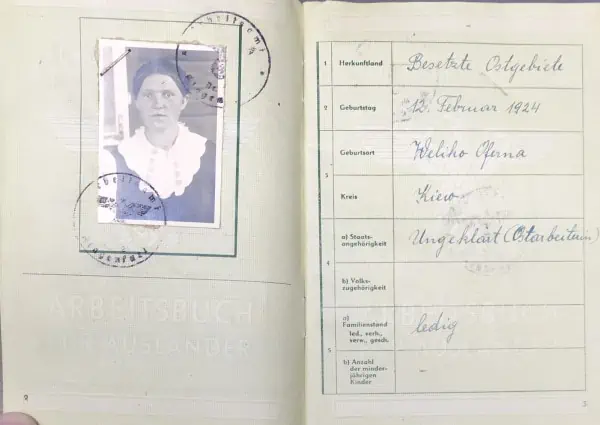 ARBEITSBUCH
FÜR AUSLÄNDER
1 Herkunftland Besetzte Ostgebiete
2 Geburtstag 12. Februar 1924
3 Geburtsort Weliko Oferna
Kreis Kiew
4 a) Staats-
angehörigkeit Ungeklärt (Ostarbeiterin)
b) Volks-
zugehörigkeit
5 a)
Familienstand ledig
led., verh.,
verw., gesch.
b) Anzahl
der minder-
jährigen
Kinder
3